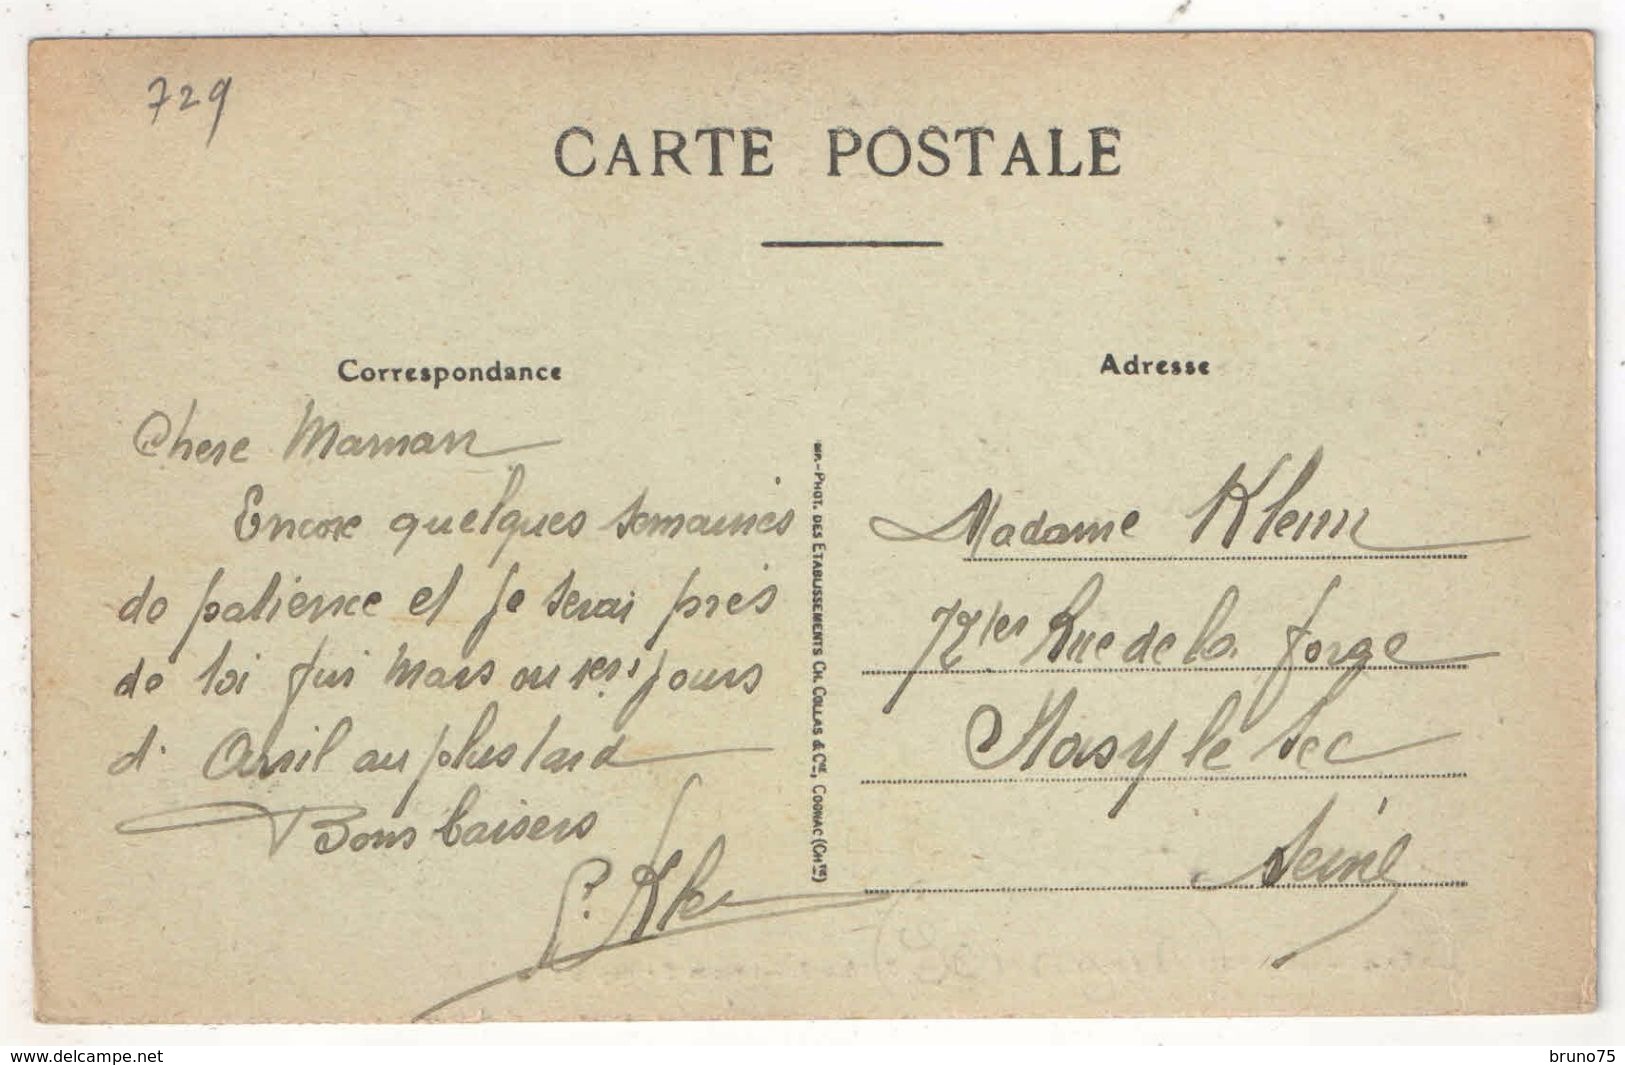 729
CARTE POSTALE
Correspondance
Chere Maman
Encore quelques semaines
de patience et je serai près
de toi fin Mars ou 1ers jours
d'Avril au plus tard
Bons baisers
Imp.-PHOT. DES ETABLISSEMENTS CH. COLLAS & Cie, COGNAC (CHte)
Adresse
Madame Klein
Rue de la Forge
Noisy le Sec
Seine
www.delcampe.net
bruno75